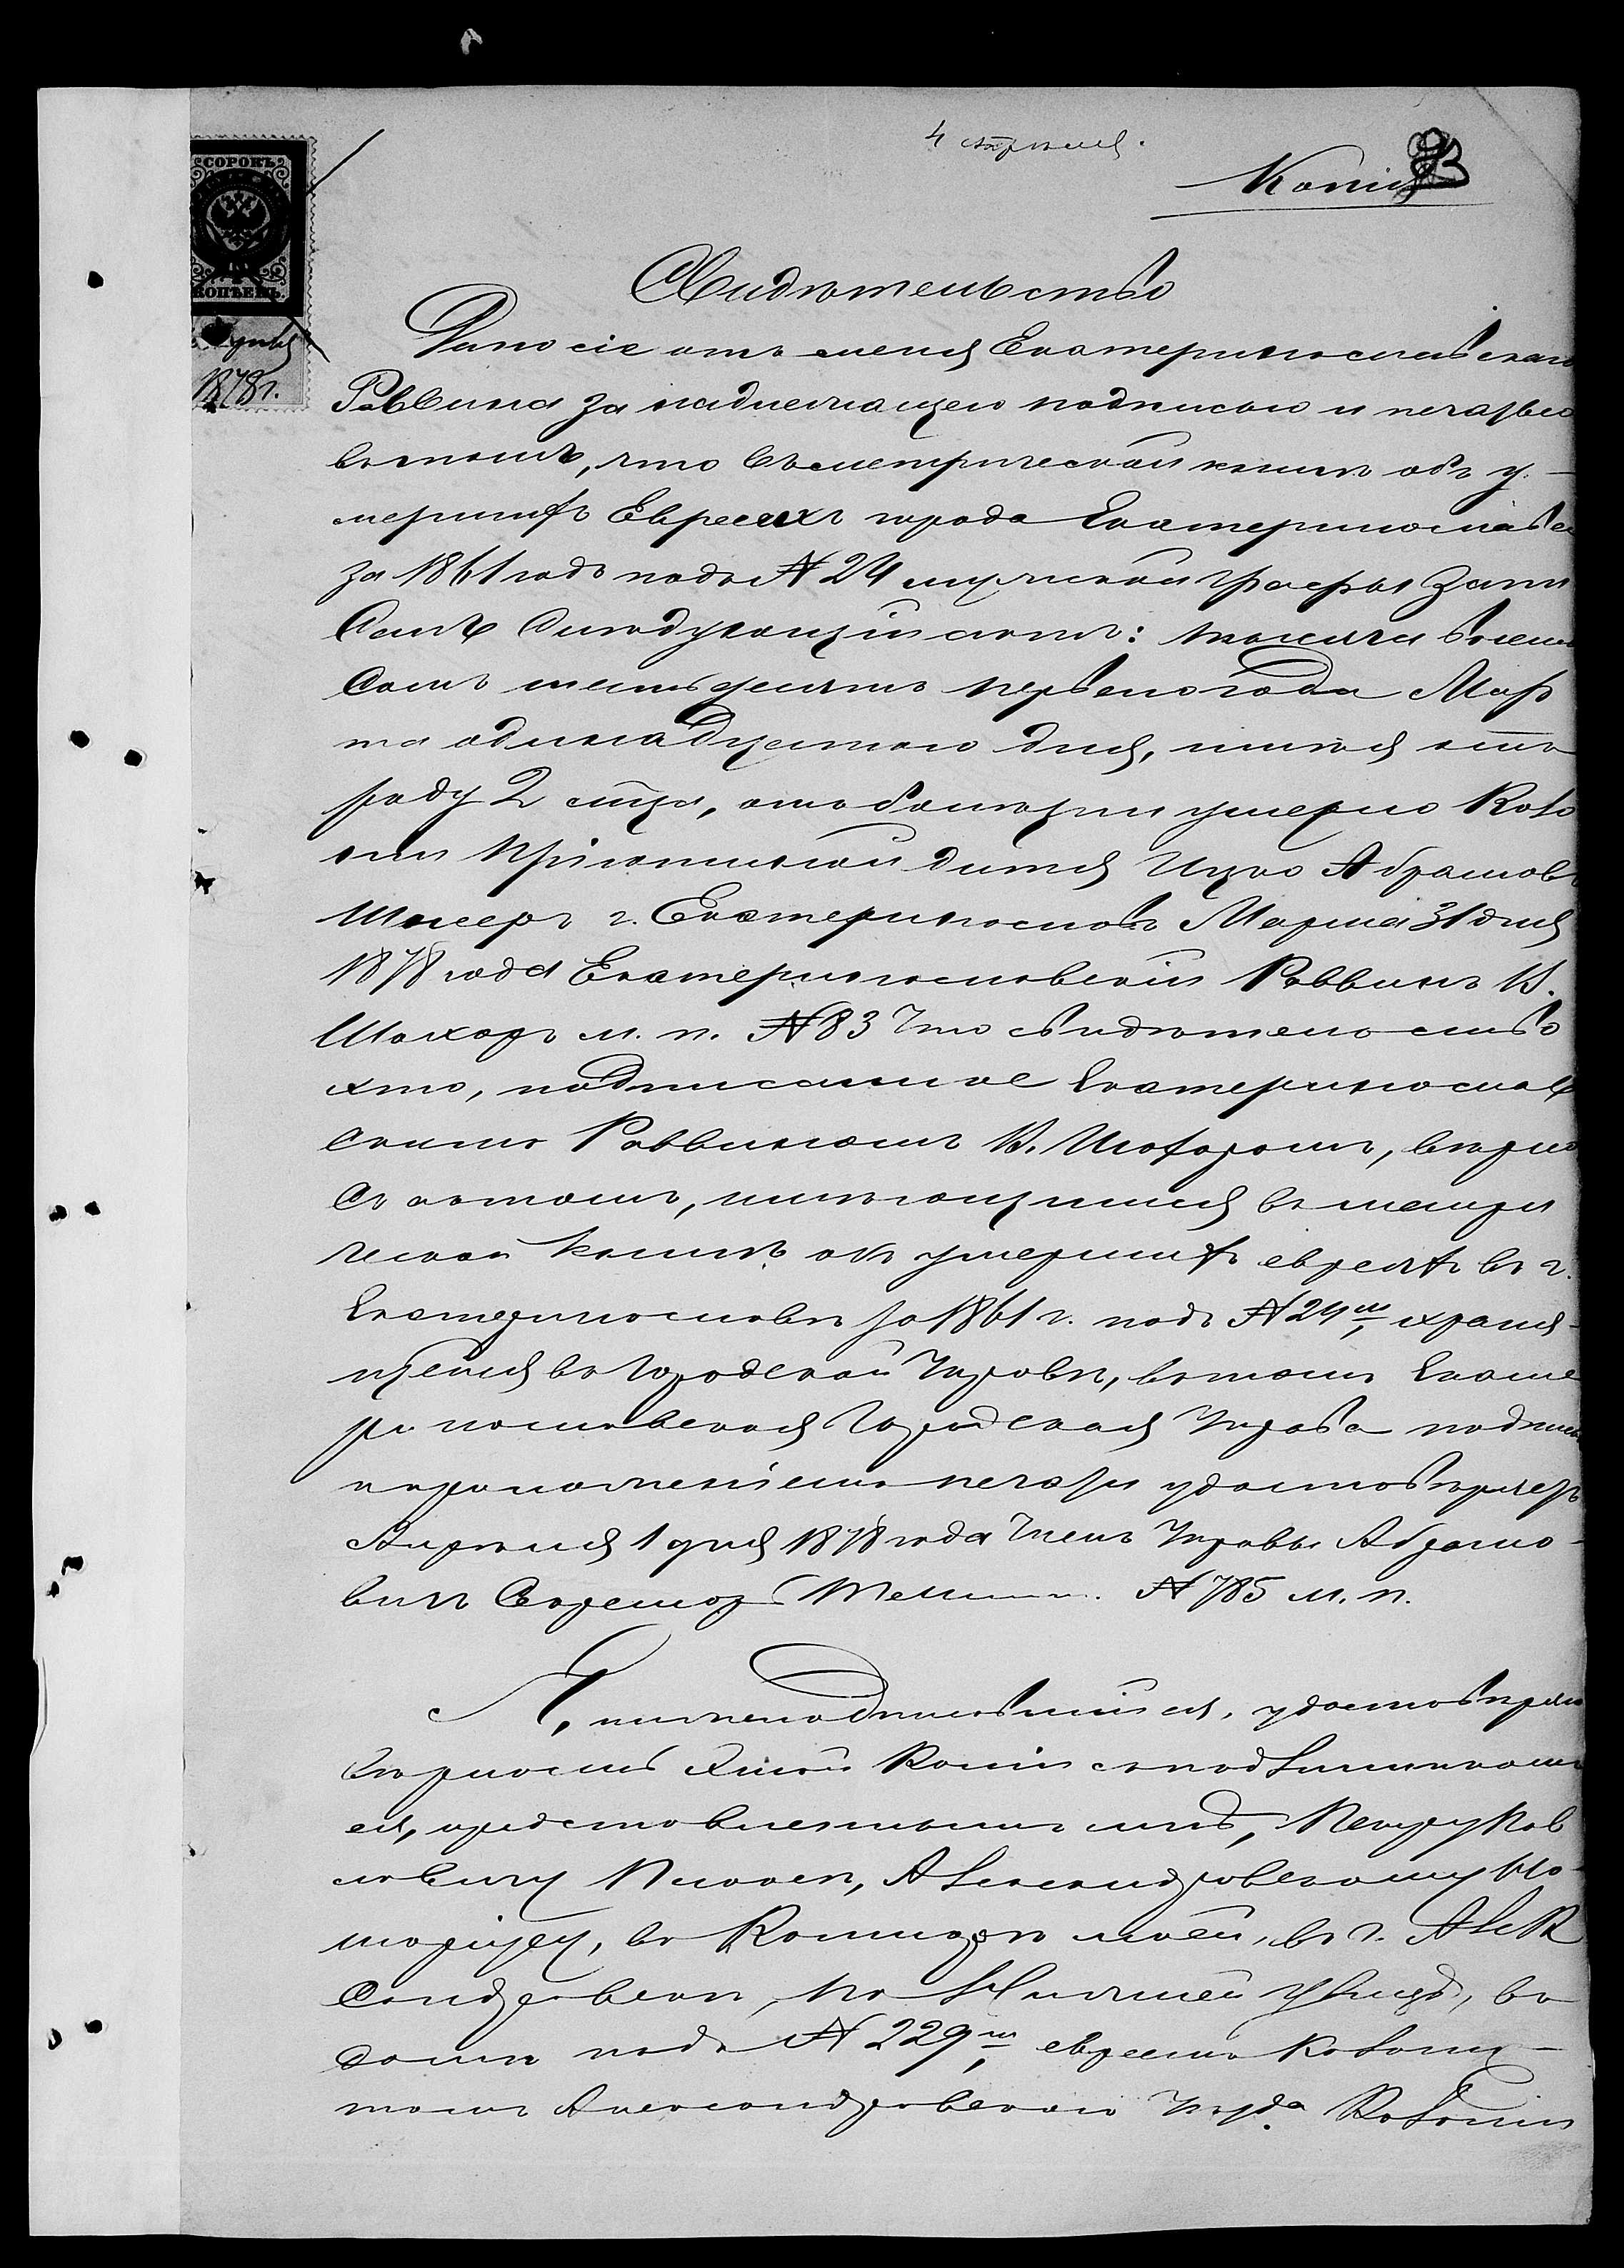 4 апрѣля.
Копія
СОРОКЪ
КОПѢЕКЪ.
1878 г.
Свидѣтельство
Дано сіе отъ меня Екатеринославскаго
Раввина за надлежащею подписью и печатью
въ томъ, что въ метрической книгѣ объ у-
мершихъ Евреяхъ города Екатеринослава
за 1861 годъ подъ № 24 мужской графы запи
санъ слѣдующій актъ: тысяча восемь
сотъ шестьдесятъ перваго года Мар
та одинадцатаго дня, имѣя отъ
роду 2 года, отъ болѣзни умерло Коло
ніи Пріютной дитя Ицко Абрамовъ
г. Екатеринославъ Марта 31 дня
1878 года Екатеринославскій Раввинъ В.
Шахоръ м. п. № 83 Что свидѣтельство
это, подписанное Екатеринослав
скимъ Раввиномъ В. Шахоромъ, вѣрно
съ актомъ, имѣющимся въ метри
ческой книгѣ объ умершихъ евреяхъ въ г.
Екатеринославѣ за 1861 г. подъ № 24 м, храня-
щейся въ Городской Управѣ, въ томъ Екате
ринославская Городская Управа подписью
и приложеніемъ печати удостовѣряетъ
Апрѣля 1 дня 1878 года Членъ Управы Абрамо-
вичъ Секретарь № 785 м. п.
Я, нижеподписавшійся, удостовѣряю
вѣрность этой копіи съ подлинникомъ
ея, представленнымъ мнѣ, Петру Пав
ловичу Александровскому Но
таріусу, въ Конторѣ моей, въ г. Алек
сандровскѣ, по улицѣ, въ
домѣ подъ № 229 м, евреемъ колонис-
томъ Александровскаго уѣзда Колоніи